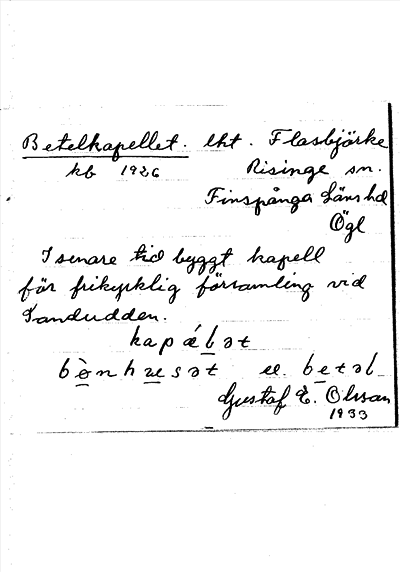 Betelkapellet. lht. Flasbjörke
kb 1926 Risinge sn.
Finspånga läns hd
Ögl
I senare tid byggt kapell
för frikyrklig församling vid
Sandudden.
kapǽlət
bònhusət el. betəl
Gustaf E. Olsson
1933